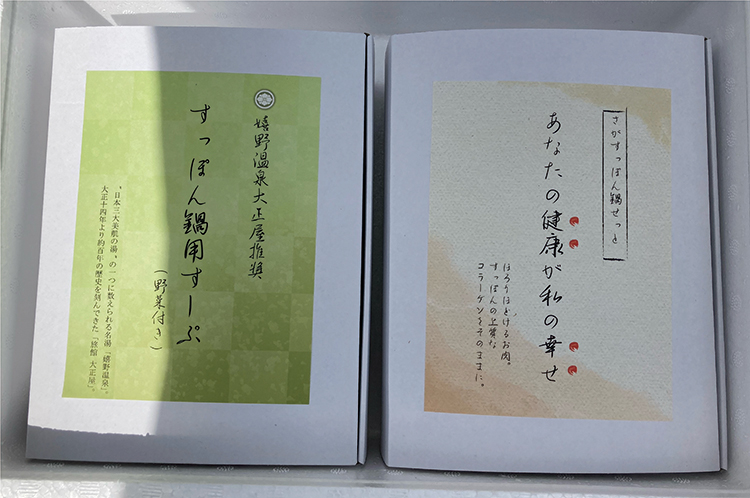 嬉野温泉大正屋推奨
すっぽん鍋用すーぷ
(野菜付き)
"日本三大美肌の湯"の一つに数えられる名湯「嬉野温泉」。
大正十四年より約百年の歴史を刻んできた「旅館 大正屋」。
さがすっぽん鍋せっと
あなたの健康が私の幸せ
ほろりほどけるお肉。
すっぽんの上質な
コラーゲンをそのままに。